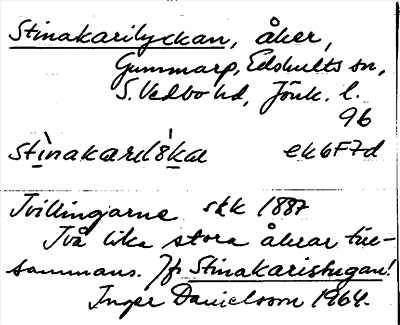 Stinakarilyckan, åker,
Gummarp, Edshults sn,
S. Vedbo hd, Jönk. l.
9b
stìnakarıl8̀ka ek6F7d
Tvillingarne skk 1887
Två lika stora åkrar till-
sammans. Jfr Stinakaristugan!
Inger Danielsson 1964.